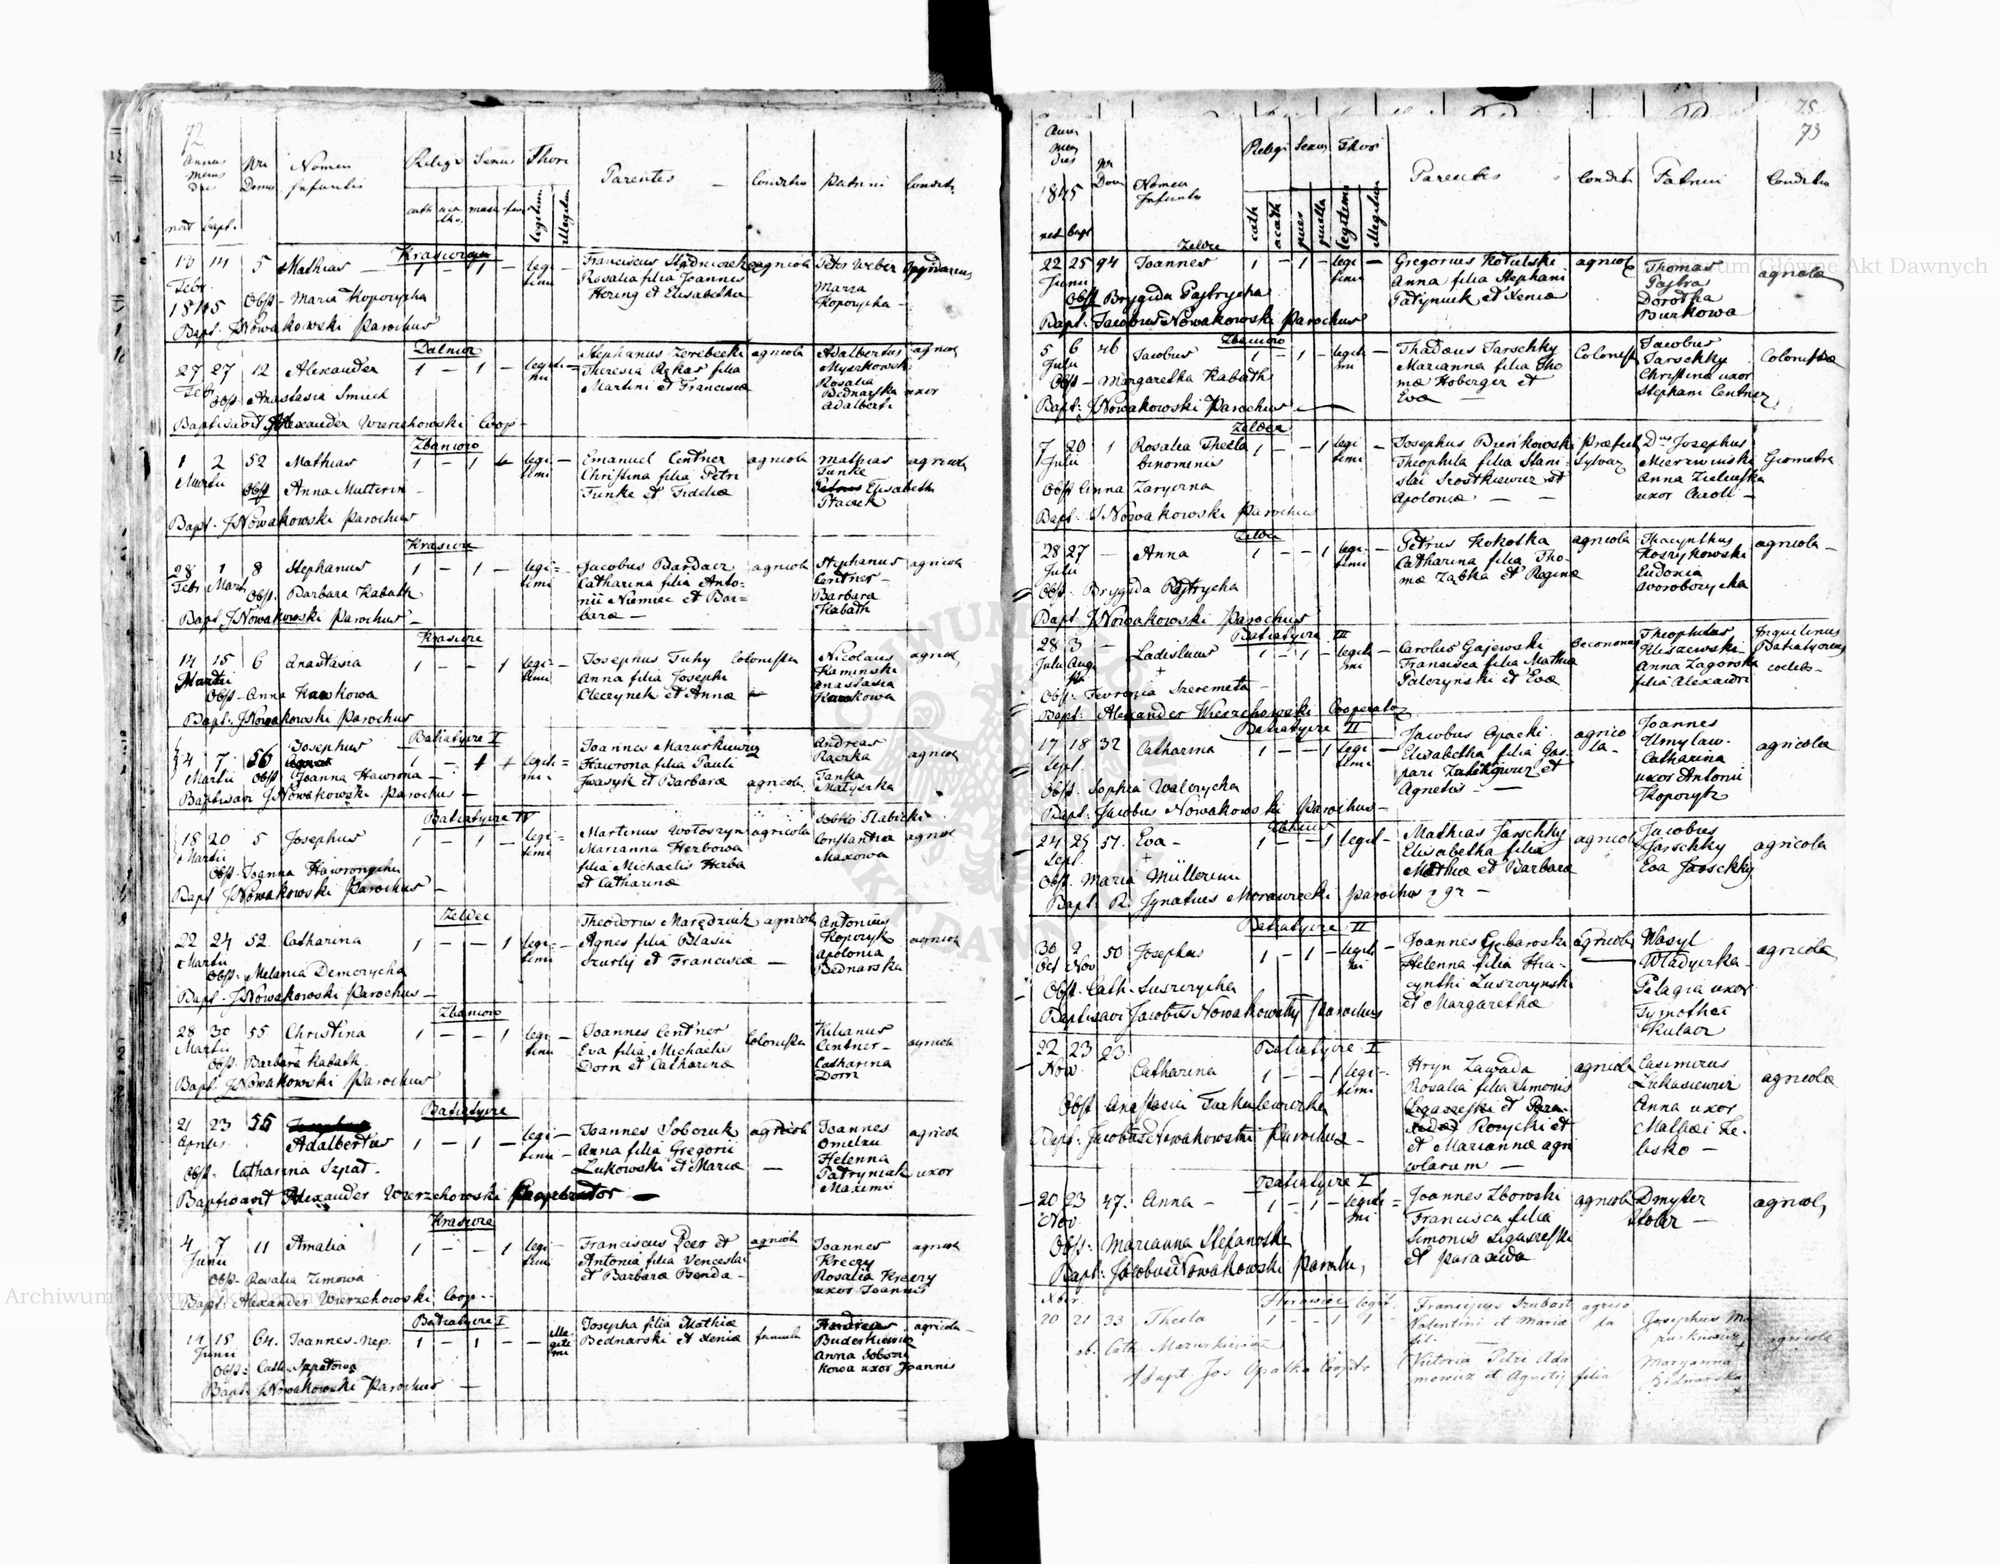 72
Annus Mensis dies
Nri Domus
Nomen Infantis
Religi
Sexus
Thori
Parentes
Conditio
Patrini
Conditio
nat bapt.
cath
masc
legitimi
illegitimi
Krasiczyn
13 14 5 Mathias 1 - 1 - legi timi
Febr 1845
Franciscus
Rosalia filia Joannis
Hering et Elisabetha
agricola
Petrus Weber
Maria
Koporycha
Obst - Maria Koporycha
Bapt. J Nowakowski Parochus
Dalnicz
27 27 12 Alexander 1 - 1 -
Febr
Stephanus Zerebecki
Theresia Rekas filia
Martini et Francisca
agricola
Adalbertus
Myszkowski
Rosalia
Bednarska uxor
Adalberti
agricol
Obst - Anastasia Smiech
Baptisavit Alexander Wierzchowski Coop
Zbaniow
1 2 52 Mathias 1 - 1 legi timi
Martii
Emanuel Centner
Christina filia Petri
Funke et Fideliæ
agricola
Mathias
Funke
Elisabetha
Ptacek
agricol
Obst Anna Mullerin
Bapt. J Nowakowski Parochus
Krasice
28 1 8 Stephanus 1 - 1 - legi timi
Febr Mart
Jacobus Bardacz
Catharina filia Anto-
nii Niemiec et Bar-
baræ -
agricola
Stephanus
Centner -
Barbara
Kabath
agricola
Obst. Barbara Kabath
Bapt. J Nowakowski Parochus -
Krasice
14 15 6 Anastasia 1 - - 1 legi timi
Martii
Josephus Tuhy
Anna filia Josephi
Oleczynek et Annæ
Colonista
Nicolaus
Kaminski
Anastasia
Kawkowa
agricol
Obst - Anna Kawkowa
Bapt. J Nowakowski Parochus
Batiatycze V
4 7 56 Josephus
Martii
Joannes Mazurkiewicz
Hawrona filia Pauli
Iwasyk et Barbaræ
agricola
Andreas
Raczka
Tanka
Matyszka
agricol
Obst Joanna Hawrona
Baptisavi J Nowakowski Parochus -
Batiatycze IV
18 20 5 Josephus 1 - 1 - legi timi
Martii
Martinus Wołoszyn
Marianna Herbowa
filia Michaelis Herba
et Catharinæ
agricola
Sobko Slabicki
Constantia
Maxowa
agricol
Obst. Joanna Hawronycha
Bapt J Nowakowski Parochus -
Zeldec
22 24 52 Catharina 1 - - 1 legi timi
Martii
Theodorus Marędziuk
Agnes filia Blasii
Szurly et Franciscæ -
agricola
Antonius
Koporzyk
Apolonia
Bednarska
agricola
Obst. Melania Demczycha
Bapt - J Nowakowski Parochus -
Zbaniow
28 30 55 Christina 1 - - 1 legi timi
Martii
Joannes Centner
Eva filia Michaelis
Dorn et Catharinæ
Colonista
Kilianus
Centner -
Catharina
Dorn
agricola
Obst. Barbara Kabath
Bapt. J Nowakowski Parochus
Batiatycze
21 23 55
Aprilis Adalbertus 1 - 1 - legi timi
Joannes Sobczuk
Anna filia Gregorii
Zukowski et Mariæ -
agricola
Joannes
Omelzu
Helenna
Patryniak uxor
Maximi
agricola
Obst - Catharina Szpat -
Baptisavit Alexander Wierzchowski Cooperator -
Krasice
4 7 11 Amalia 1 - - 1 legi timi
Junii
Franciscus Peer et
Antonia filia Venceslai
et Barbaræ Benda -
agricola
Joannes
Kreczy
Rosalia Kreczy
uxor Joannis
agricola
Obst - Rosalia Zimowa
Bapt: Alexander Wierzchowski Coop -
Batiatycze I
14 15 64. Joannes-Nep. 1 - 1 - - ille giti mi
Junii
Josepha filia Mathiæ
Bednarski et Xeniæ
famula
Buderkiewicz
Anna Sobczu
kowa uxor Joannis
agricola -
Obst: Cath. Szpatowa
Bapt. J Nowakowski Parochus -
75
73
Annus Mens dies
1845
Nr Dom
Nomen Infantis
Religi
Sexus
Thori
Parentes
Conditi
Patrini
Conditio
nat bapt
cath
acath
puer
puella
legitimi
illegitimi
Zeldec
22 25 94 Joannes 1 - 1 - legi timi -
Junii
Gregorius Kotulski
Anna filia Stephani
Patyniuk et Xeniæ
agricol
Thomas
Pastra
Dorotha
Burkowa
agricola
Obst Brygida Pastrycha
Bapt. Jacobus Nowakowski Parochus
Zbaniow
5 6 46 Jacobus 1 - 1 - legiti mi -
Julii
Thadæus Jarschky
Marianna filia Tho
mæ Hoberger et
Evæ -
Colonist
Jacobus
Jarschky
Christina uxor
Stephani Centner
Colonistæ
Obst - Margaretha Kabath
Bapt: J Nowakowski Parochus -
Zeldec
7 20 1 Rosalia Thecla 1 - - 1 legi timi -
Julii binominis
Josephus Bieńkowski
Theophila filia Stani-
slai Szostkiewicz et
Apoloniæ -
Præfect
Sylvar
Dnus Josephus
Mierzwinski
Anna Zielinska
uxor Caroli -
Geometra
Obst Anna Zaryczna
Bapt. J Nowakowski Parochus
Zeldec
28 27 - Anna 1 - - 1 legi timi -
Julii
Petrus Kokotka
Catharina filia Tho-
mæ Zabka et Reginæ
agricola
Hyacynthus
Koszykowski
Eudoxia
Woroborycha
agricola -
Obst. Brygida Pastrycha
Bapt J Nowakowski Parochus
Batiatycze III
28 3 - Ladislaus 1 - 1 - legiti mi
Julii Augu sti
Carolus Gajewski
Francisca filia Mathia
Palczynski et Evæ
Oeconomus
Theophilus
Kliszewski -
Anna Zagorska
filia Alexandri
Inquilinus
Batiatycensis
coelebs -
Obst. Fevronia Szeremeta -
Bapt. Alexander Wierzchowski Cooperator
Batiatycze II
17 18 32 Catharina 1 - - 1 legi timi -
Sept
Jacobus Opacki
Elisabetha filia Gas-
pari Zulikiewicz et
Agnetis -
agrico la -
Joannes
Umylaw -
Catharina
uxor Antonii
Koporytz
agricola
Obst. Sophia Walczycha
Bapt. Jacobus Nowakowski Parochus -
Zbaniow
24 25 57. Eva - 1 - - 1 legit -
Sept.
Mathias Jarschky
Elisabetha filia
Mathiæ et Barbaræ
agricola
Jacobus
Jarschky
Eva Jarschky
agricola
Obst. Maria Müllerinn
Bapt. R. Ignatius Morawiecki Parochus r gr -
Batiatycze II
30 2 50 Josephus 1 - 1 - legiti mi -
Oct Nov
Joannes Gebaroski
Helenna filia Hia-
cynthi Zuszczynski
et Margarethæ
agricola
Wasyl
Wladyczka -
Pelagia uxor
Tymothei
Kulacz
agricola
Obst. Cath. Suszczycha
Baptisavi Jacobus Nowakowski Parochus
Batiatycze I
22 23 23 Catharina 1 - - 1 legi timi -
Nov.
Hryn Zawada
Rosalia filia Simonis
Ligaszefski et Para-
xedæ Rozycki et
et Mariannæ agri
colarum -
agricola
Casimirus
Lukasiewicz
Anna uxor
Matfæi Ze-
lisko -
agricola
Obst Anastasia Tarkulewiczka
Bapt: Jacobus Nowakowski Parochus -
Batiatycze I
20 23 47. Anna - 1 - 1 - legiti mi
Nov.
Joannes Zborowski
Francisca filia
Simonis Ligaszefski
et Paraxida
agricola
Dmyter
Stolar -
agricol,
Obst: Marianna Stefanoska
Bapt: Jacobus Nowakowski Paroch,
Xber.
20 21 33 Thecla 1 - - 1 legit.
Franciscus Szubart
Valentini et Mariæ
fil. -
Victoria Petri Ada
mowicz et Agnetis filia
agrico la
Josephus Ma
zurkiewicz
Maryanna
Bednarska
agricola
ob. Cath. Mazurkiewicz
Bapt. Jos. Opałka Cooptr
Archiwum Główne Akt Dawnych